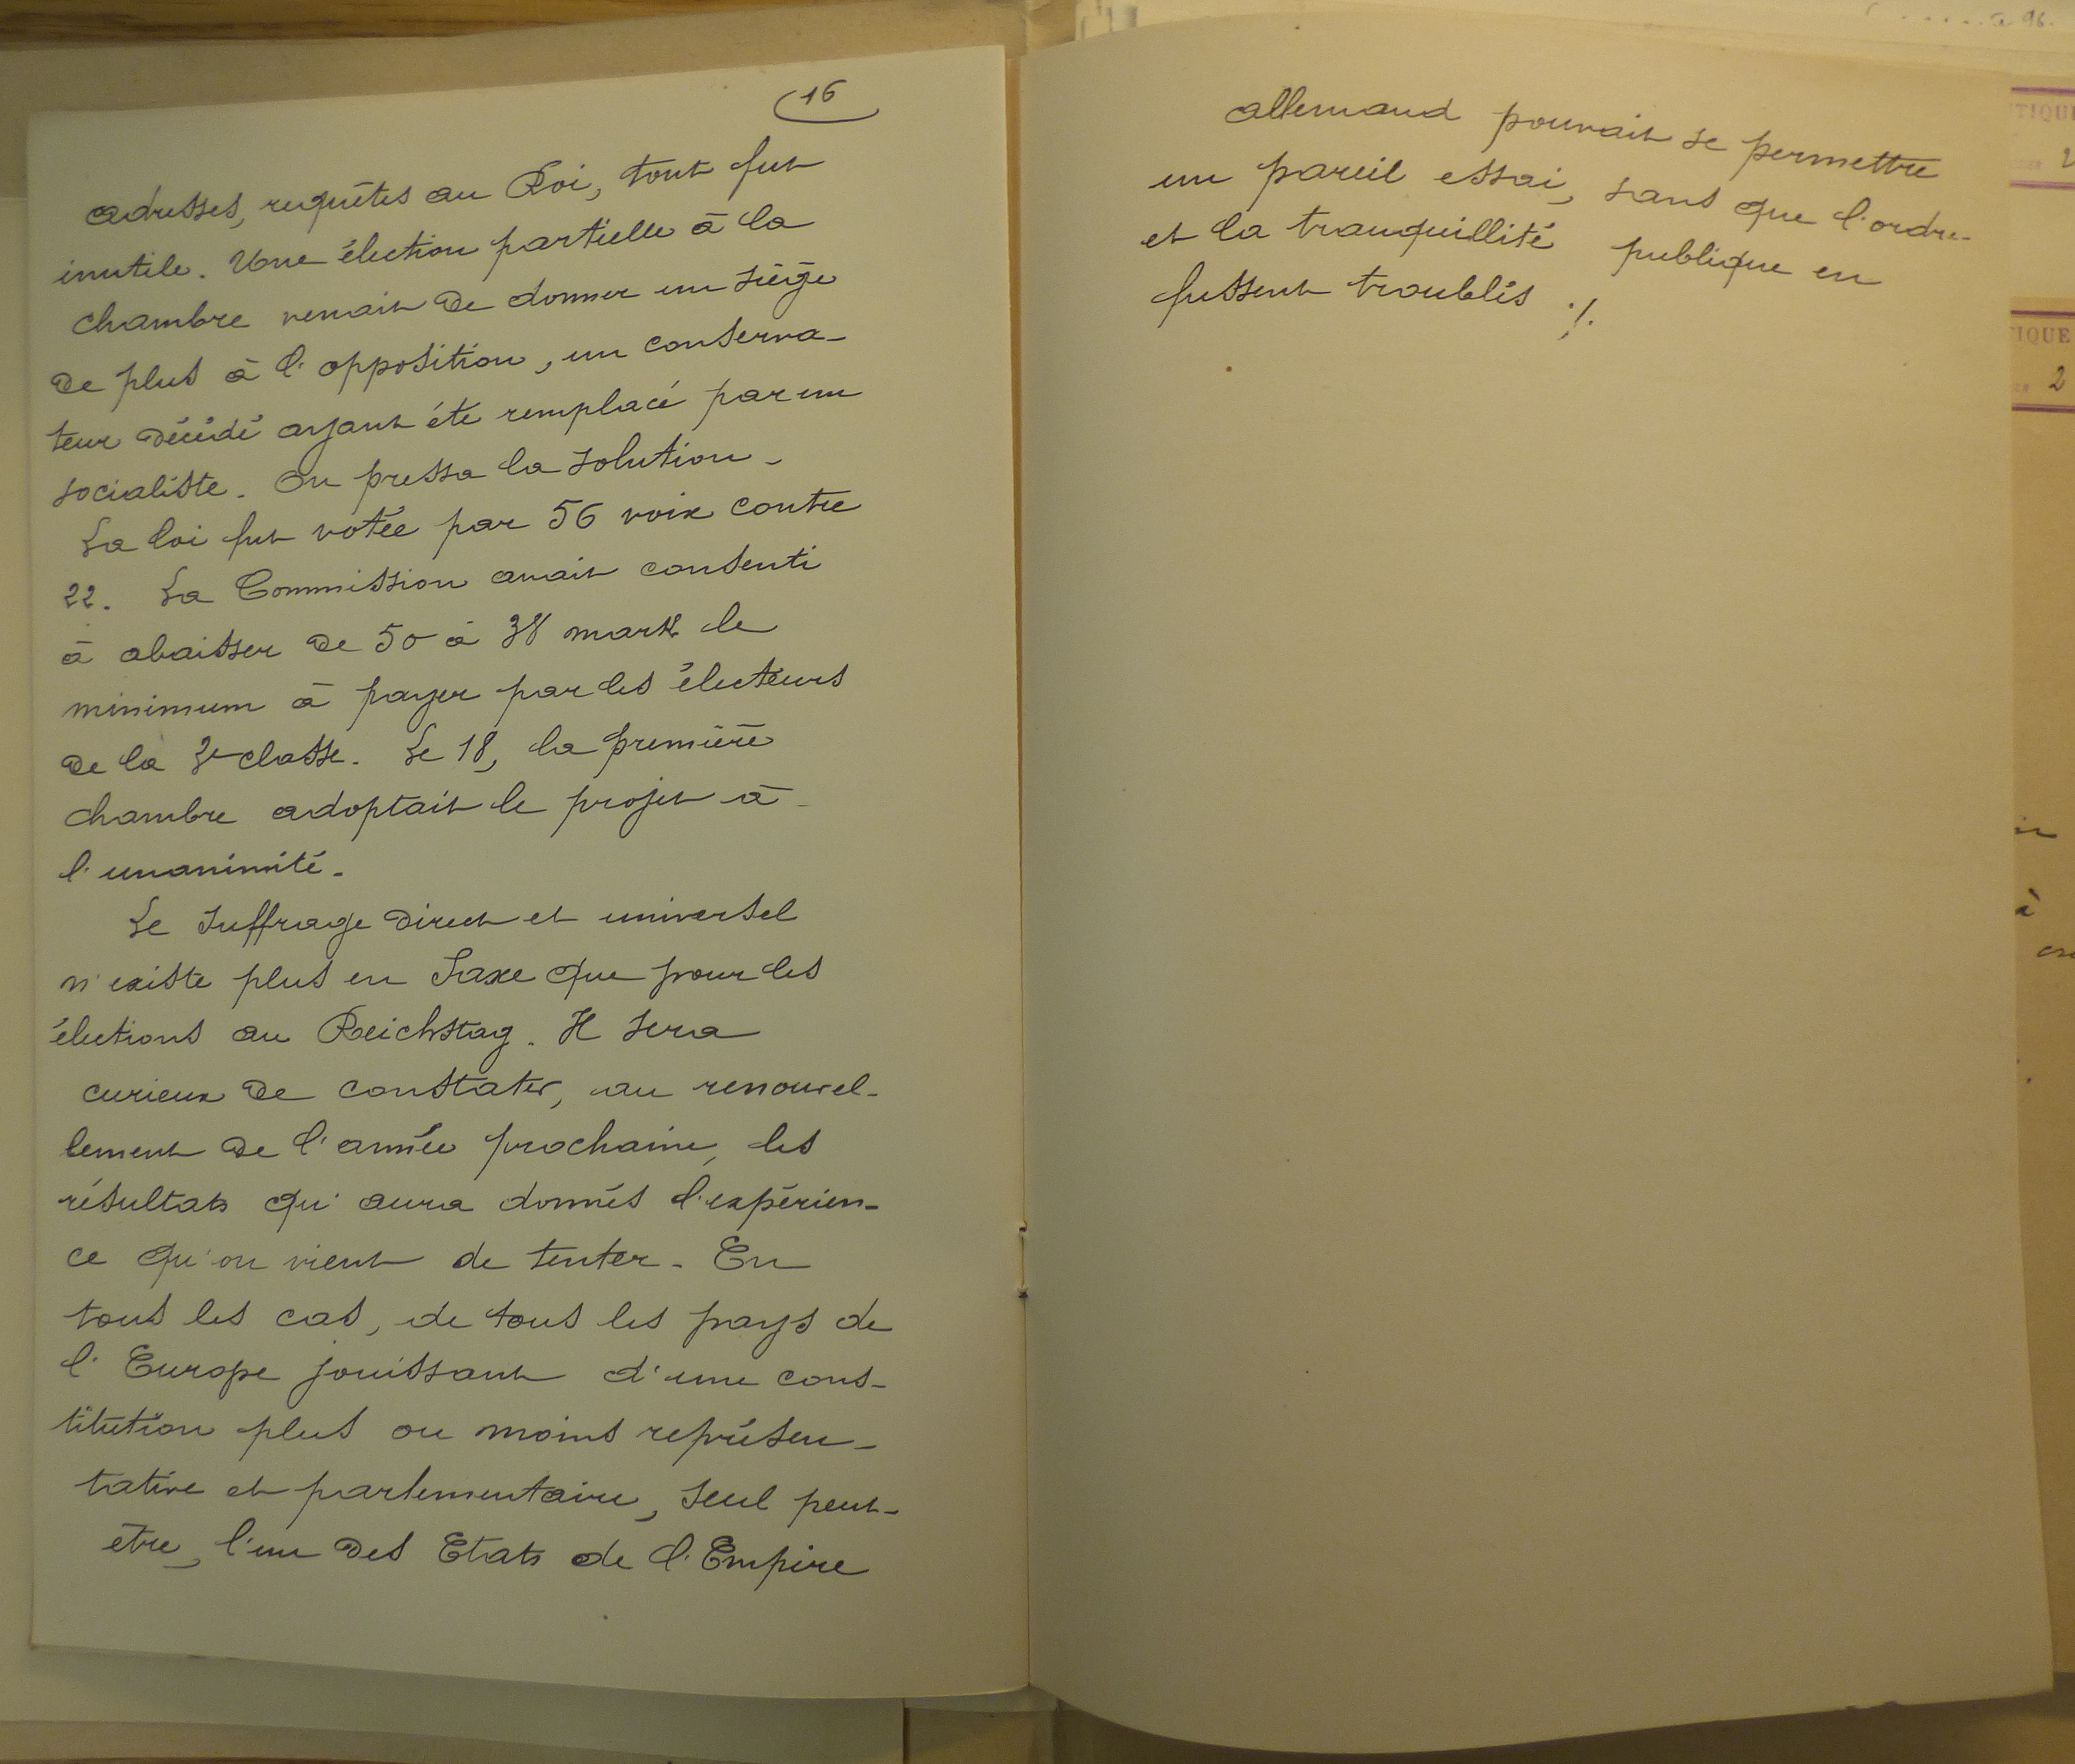 16
adresses, requêtes au Roi, tout fut
inutile. Une élection partielle à la
chambre venait de donner un siège
de plus à l'opposition, un conserva-
teur décédé ayant été remplacé par un
socialiste. On pressa la solution.
La loi fut votée par 56 voix contre
22. La Commission avait consenti
à abaisser de 50 à 38 marks le
minimum à payer par les électeurs
de la 2e classe. Le 18, la première
chambre adoptait le projet à
l'unanimité.
Le suffrage direct et universel
n'existe plus en Saxe que pour les
élections au Reichstag. Il sera
curieux de constater, au renouvel-
lement de l'année prochaine, les
résultats qu'aura donnés l'expérien-
ce qu'on vient de tenter. En
tous les cas, de tous les pays de
l'Europe jouissant d'une cons-
titution plus ou moins représen-
tative et parlementaire, seul peut-
être, l'un des Etats de l'Empire
allemand pouvait se permettre
un pareil essai, sans que l'ordre
et la tranquillité publique en
fussent troublés ./.
96.
TIQUE
TIQUE
2
à